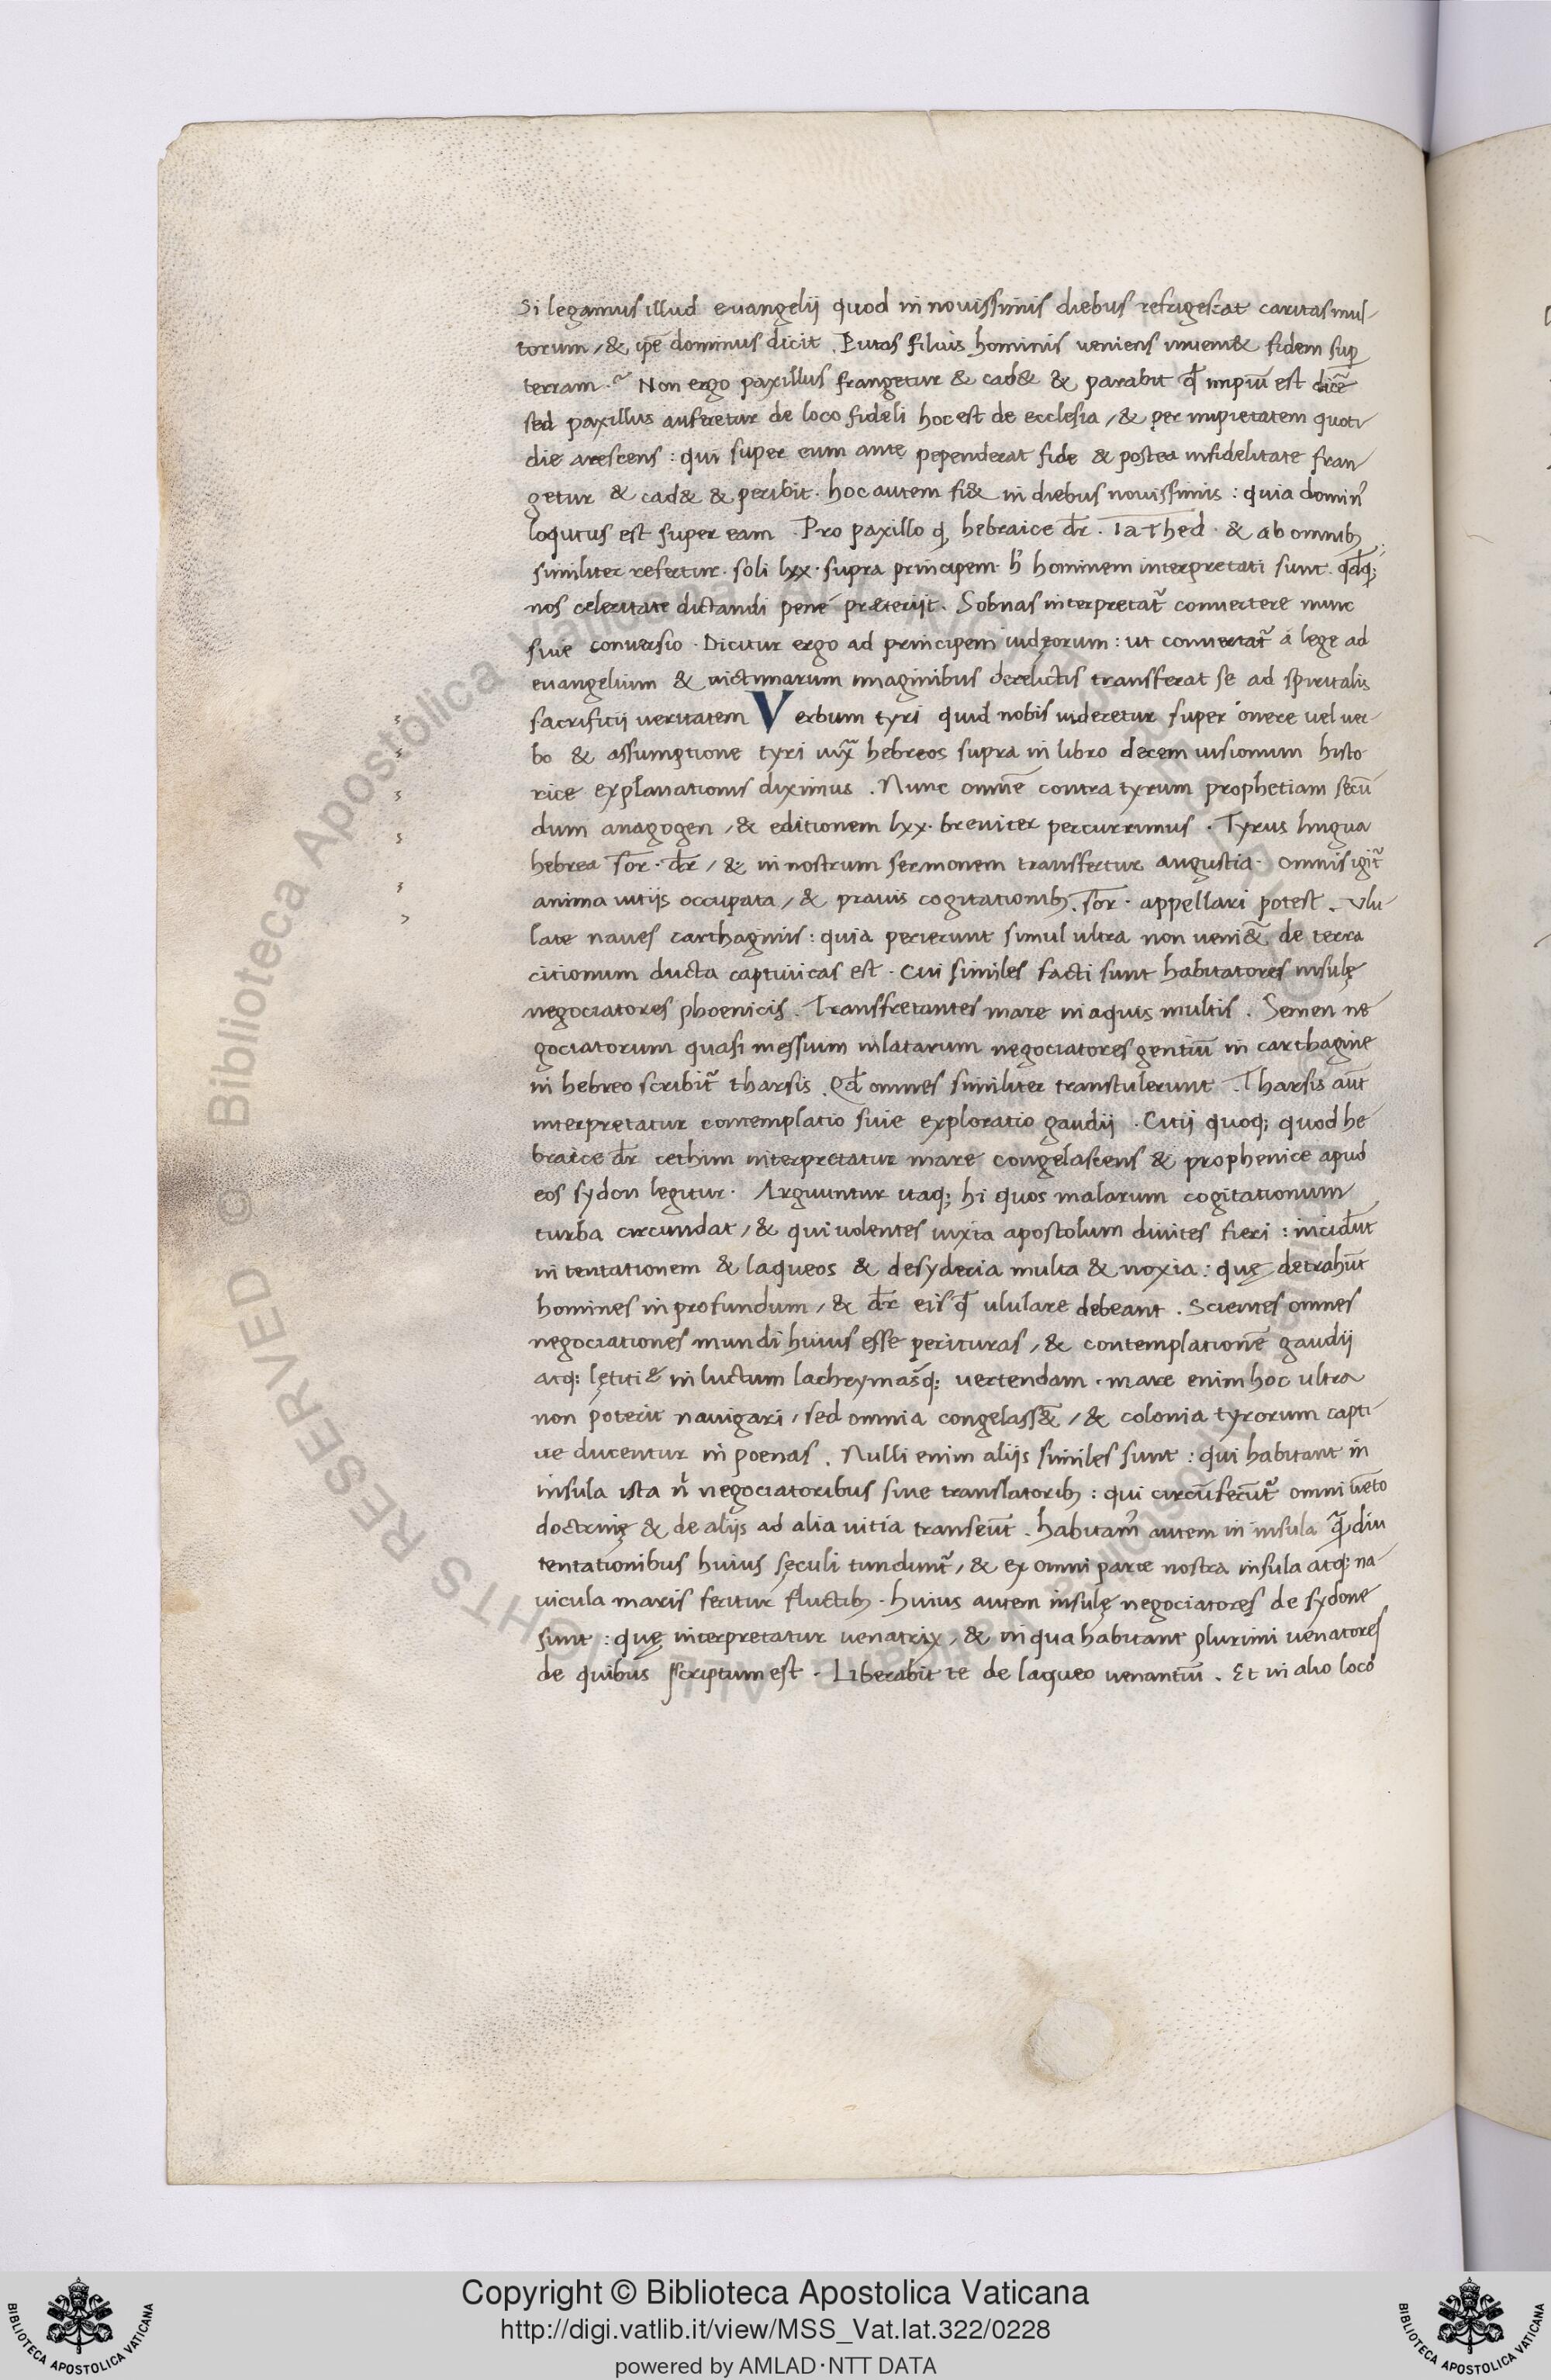 Si legamus illud euangelij quod in nouissimis diebus refrigescat caritas mul-
torum, & ip̅e dominus dicit . Putas filius hominis ueniens inueni& fidem sup̱
terram .? Non ergo paxillus frangetur & cad& & parabit qđ impiū est dicē
sed paxillus auferetur de loco fideli hoc est de ecclesia, & per impietatem quoti-
die arescens : qui super eum ante pependerat fide & postea infidelitate fran-
getur & cad& & peribit . hoc autem fi& in diebus nouissimis : quia domin9
loqutus est super eam . Pro paxillo q̨ hebraice dr̄ . Iathed . & ab omnib;
similiter refertur . soli lxx . supra principem hominem interpretati sunt . qđq;
nos celeritate dictandi pene præterijt . Sobnas interpretat̃ conuertere nunc
siue conuersio . Dicitur ergo ad principem iudęorum : ut conuertat̃ a lege ad
euangelium & uictimarum imaginibus derelictis transferat se ad spiritalis
sacrificij ueritatem Verbum tyri quid nobis uideretur super onere uel uer-
bo & assumptione tyri iux̃ hebreos supra in libro decem uisionum histo
rice explanationis diximus . Nunc omnē contra tyrum prophetiam secū
dum anagogen, & editionem lxx . breuiter percurrimus . Tyrus lingua
hebrea sor . dr̄, & in nostrum sermonem transfertur angustia . omnis igit̃
anima uitijs occupata, & prauis cogitationib; . sor . appellari potest . Vlu-
late naues carthaginis : quia perierunt simul ultra non ueni&̄ . de terra
citionum ducta captiuitas est . Cui similes facti sunt habitatores insulę
negociatores phoenicis . Transfretantes mare in aquis multis . Semen ne-
gociatorum quasi messium inlatarum negociatores gentiū in carthagine
in hebreo scribit̃ tharsis . Qđ omnes similiter transtulerunt . Tharsis aūt
interpretatur contemplatio siue exploratio gaudij . Citij quoq; quod he-
braice dr̄ cethim interpretatur mare congelascens & prophenice apud
eos sydon legitur . Arguuntur itaq; hi quos malarum cogitationum
turba circundat, & qui uolentes iuxta apostolum diuites fieri : incidūt
in tentationem & laqueos & desyderia multa & noxia : quę detrahūt
homines in profundum, & dr̄ eis qđ ululare debeant . Scientes omnes
negociationes mundi huius esse perituras, & contemplationē gaudij
atq; lętitię in luctum lachrymasq; uertendam . mare enim hoc ultra
non poterit nauigari, sed omnia congelass&̄, & colonia tyrorum capti-
ue ducentur in poenas . Nulli enim alijs similes sunt : qui habitant in
insula ista n̄ negociatoribus siue translatorib; : qui circūferūt̃ omni uēto
doctrinę & de alijs ad alia uitia transeūt . habitam9 autem in insula q̄diu
tentationibus huius sęculi tundunt̃, & ex omni parte nostra insula atq; na-
uicula maris feritur fluctib; . huius autem insulę negociatores de sydone
sunt : quę interpretatur uenatrix, & in qua habitant plurimi uenatores
de quibus scriptum est . Liberabit te de laqueo uenantiū . Et in alio loco
Copyright © Biblioteca Apostolica Vaticana
http://digi.vatlib.it/view/MSS_Vat.lat.322/0228
powered by AMLAD·NTT DATA